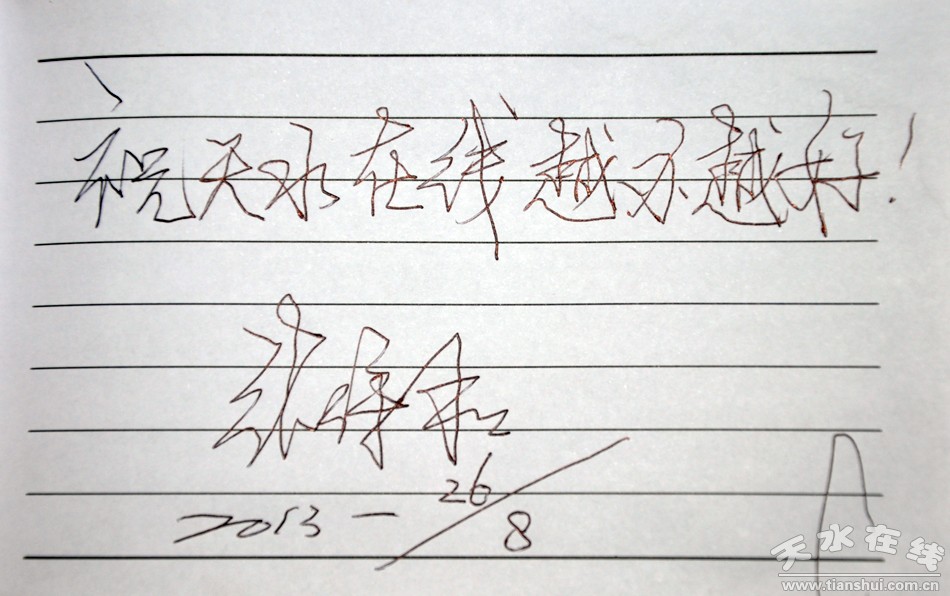 祝天水在线越办越好！
2013-26/8
天水在线
www.tianshui.com.cn